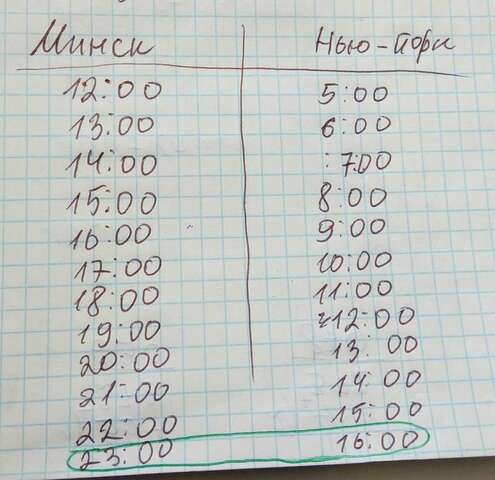 Минск Нью-Йорк
12:00 5:00
13:00 6:00
14:00 :7:00
15:00 8:00
16:00 9:00
17:00 10:00
18:00 11:00
19:00 12:00
20:00 13:00
21:00 14:00
22:00 15:00
23:00 16:00